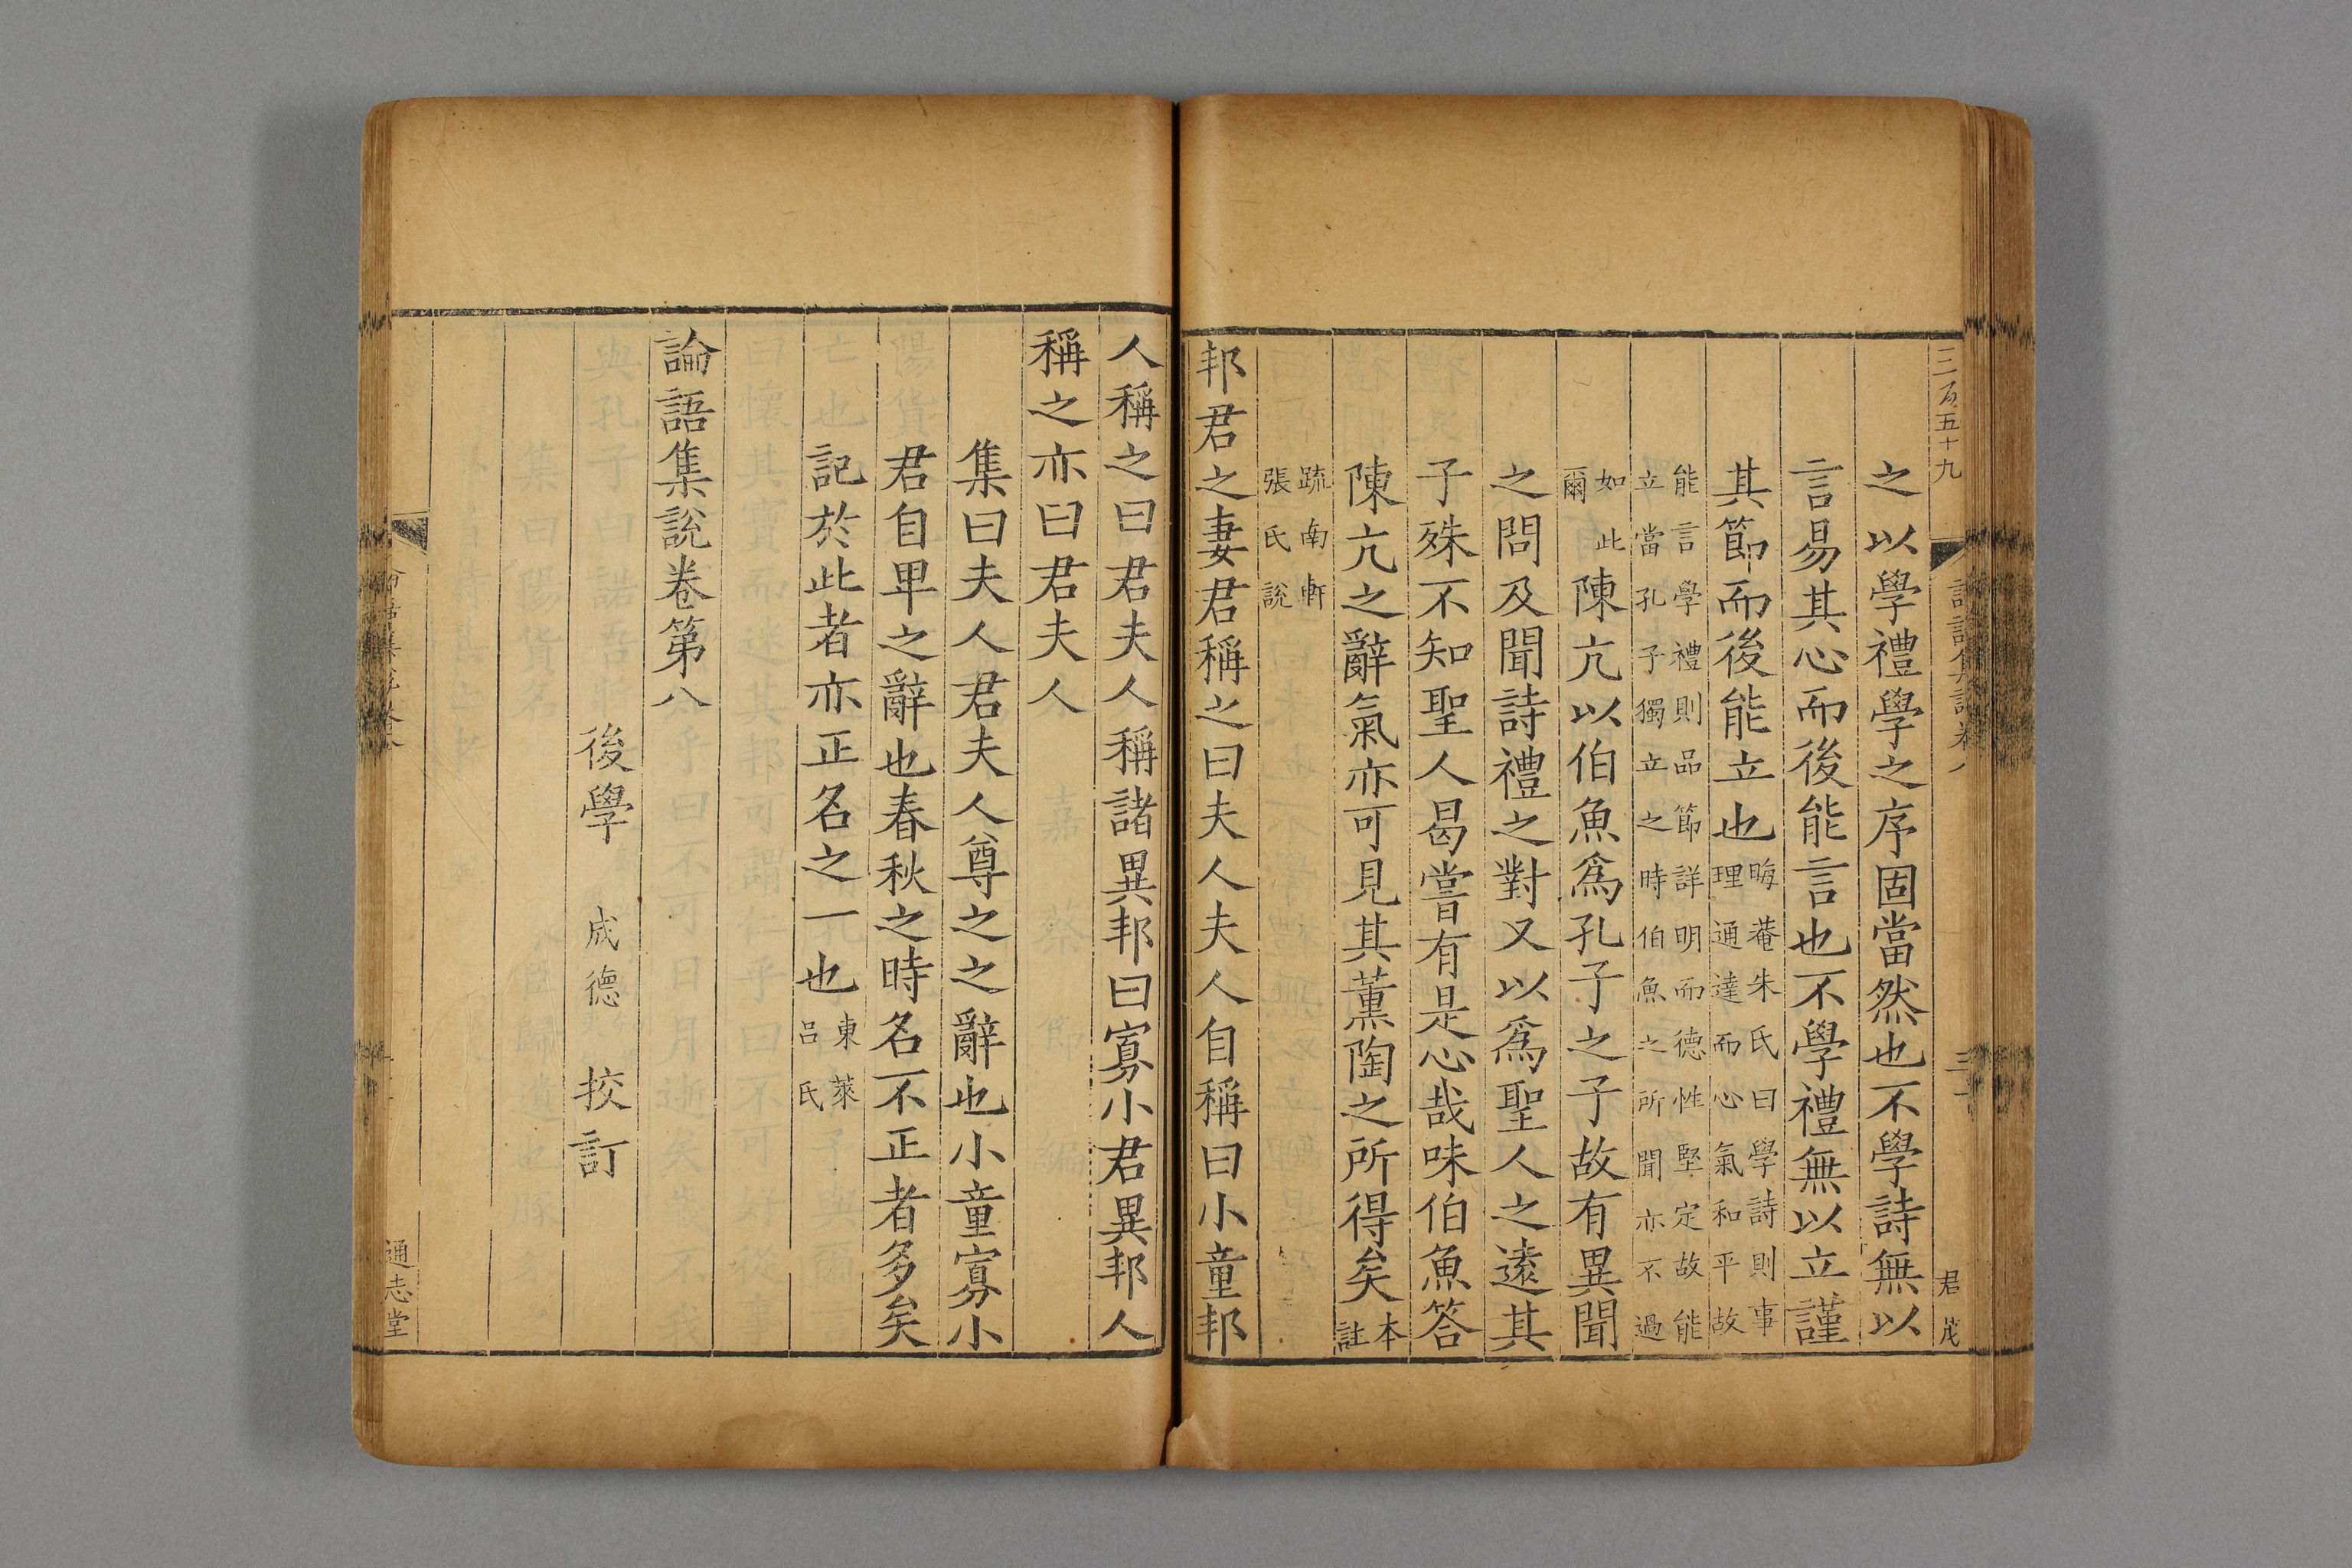 三百五十九
君茂
之以學禮學之序固當然也不學詩無以
言易其心而後能言也不學禮無以立謹
其節而後能立也晦菴朱氏曰學詩則事理通達而心氣和平故
能言學禮則品節詳明而德性堅定故能立當孔子獨立之時伯魚之所聞亦不過
如此爾陳亢以伯魚爲孔子之子故有異聞
之問及聞詩禮之對又以爲聖人之遠其
子殊不知聖人曷嘗有是心哉味伯魚答
陳亢之辭氣亦可見其薰陶之所得矣本註
疏南軒張氏說
邦君之妻君稱之曰夫人夫人自稱曰小童邦
人稱之曰君夫人稱諸異邦曰寡小君異邦人
稱之亦曰君夫人
集曰夫人君夫人尊之之辭也小童寡小
君自卑之辭也春秋之時名不正者多矣
記於此者亦正名之一也東萊呂氏
論語集說卷第八
後學 成德 挍訂
通志堂